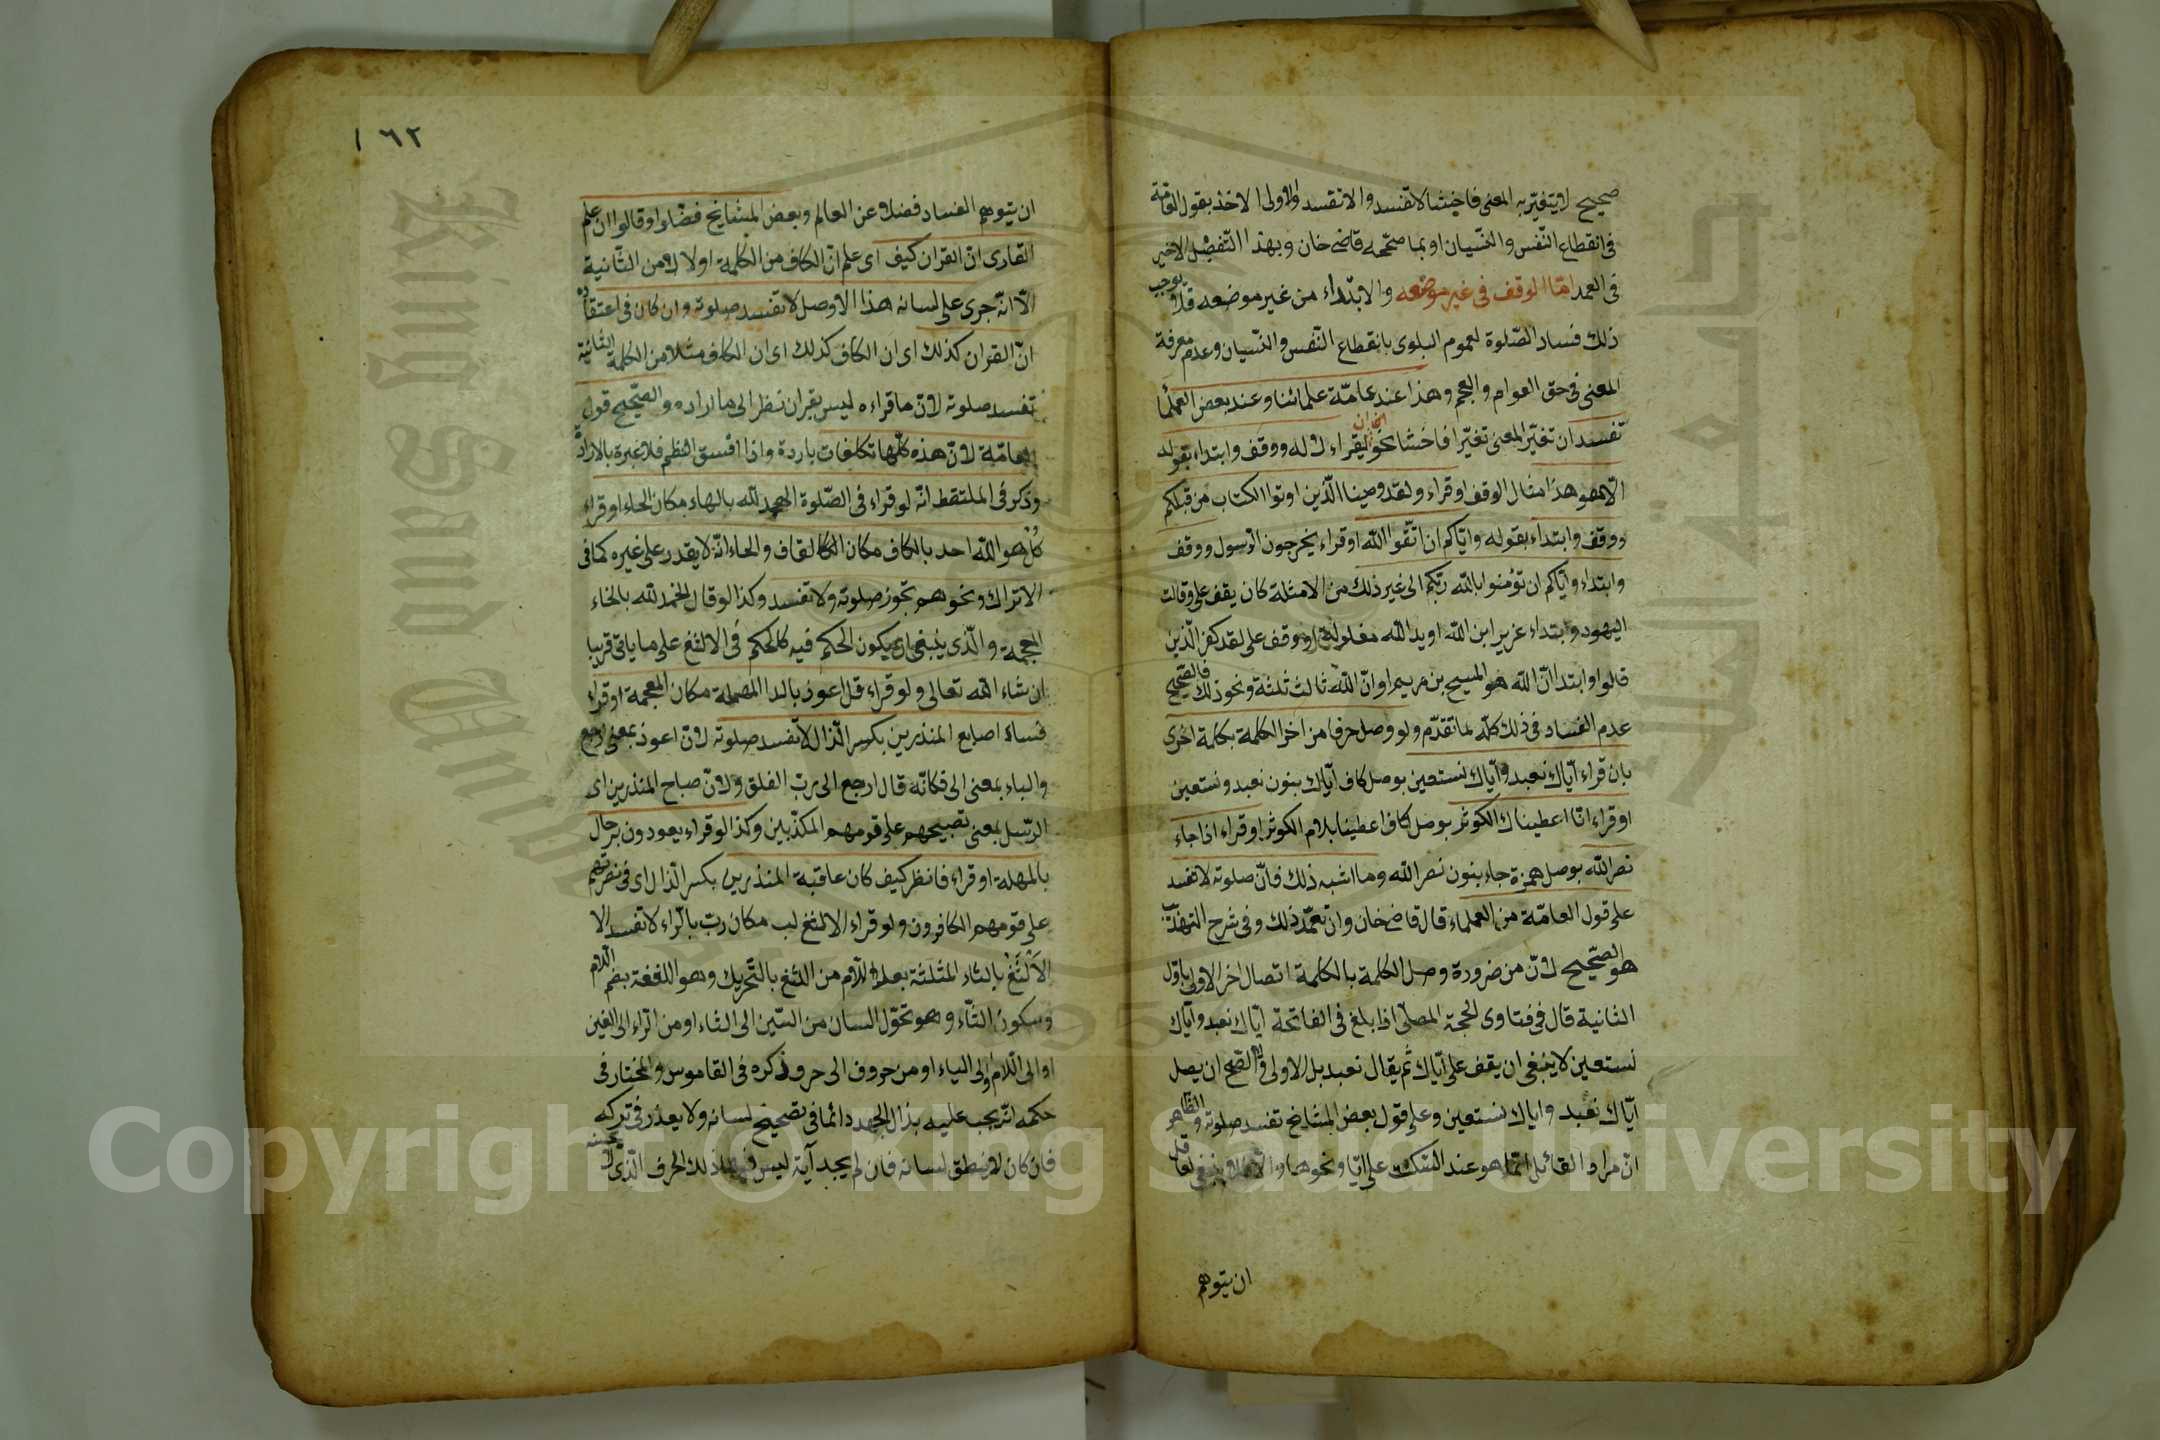 صحيح لا يتغير به المعنى فاحشا لا تفسد والا تفسد والاولى الاخذ بقول العامة
فى انقطاع النّفس والنّسيان او بما صحّحه قاضى خان وبهذا التّفصيل الاخير
فى العمد امّا الوقف فى غير موضعه والابتداء من غير موضعه فلا يوجب
ذلك فساد الصّلوة لعموم البلوى بانقطاع النّفس والنّسيان وعدم معرفة
المعنى فى حق العوام والعجم وهذا عند عامّة علمائنا وعند بعض العلماء
تفسد ان تغيّر المعنى تغيّرا فاحشا نحو ان يقراء لا اله ووقف وابتداء بقوله
الّا هو هذا مثال الوقف او قراء ولقد وصينا الّذين اوتوا الكتاب من قبلكم
ووقف وابتداء بقوله واياكم ان اتّقوا الله او قراء يخرجون الرّسول ووقف
وابتداء واياكم ان تؤمنوا بالله ربّكم الى غير ذلك من الامثلة كان يقف على وقالت
اليهود وابتداء عزير ابن الله او يد الله مغلولة او وقف على لقد كفر الّذين
قالوا وابتدا انّ الله هو المسيح بن مريم او انّ الله ثالث ثلثة ونحو ذلك فالصّحيح
عدم الفساد فى ذلك كلّه لما تقدّم ولو وصل حرفا من اخر الكلمة بكلمة اخرى
بان قراء ايّاك نعبد وايّاك نستعين بوصل كاف ايّاك بنون نعبد ونستعين
او قراء انّا اعطيناك الكوثر بوصل كاف اعطينا بلام الكوثر او قراء اذا جاء
نصر الله بوصل همزة جاء بنون نصر الله وما اشبه ذلك فانّ صلوته لا تفسد
على قول العامّة من العلماء قال قاضى خان وان تعمّد ذلك وفى شرح التهذيب
هو الصّحيح لانّ من ضرورة وصل الكلمة بالكلمة اتصال اخر الاولى باوّل
الثانية قال فى فتاوى الحجة المصلّى اذا بلغ فى الفاتحة ايّاك نعبد وايّاك
نستعين لا ينبغى ان يقف على ايّاك ثم يقال نعبد بل الاولى والاصّح ان يصل
ايّاك نعبد واياك نستعين وعلى قول بعض المشايخ تفسد صلوته والظّاهر
انّ مراد القائل انّما هو عند السّكت على ايّا ونحوها والّا فلا ينبغى لعاقل
ان يتوهم
١٦٢
ان يتوهم الفساد فضلا عن العالم وبعض المشايخ فصّلوا وقالوا ان علم
القارى انّ القران كيف اى علم انّ الكاف من الكلمة اولا لا من الثّانية
الّا انّه جرى على لسانه هذا الوصل لا تفسد صلوته وان كان فى اعتقاده
انّ القران كذلك اى ان الكاف كذلك اى ان الكاف مثلا من الكلمة الثّانية
تفسد صلوته لانّ ما قراءه ليس بقران نظرا الى ما اراده والصّحيح قول
العامّة لانّ هذه كلّها تكلفات باردة واذا اتّسق النظم فلا عبرة بالارادة
وذكر فى الملتقط انّه لو قراء فى الصّلوة الهمد لله بالهاء مكان الحاء او قراء
كل هو الله احد بالكاف مكان القاف والحاء انّه لا يقدر على غيره كما فى
الاتراك ونحوهم تجوز صلوته ولا تفسد وكذا لو قال الخمد لله بالخاء
المعجمة والّذى ينبغى ان يكون الحكم فيه كالحكم فى الالثغ على ما ياتى قريبا
ان شاء الله تعالى ولو قراء قل اعوذ بالدال المهملة مكان المعجمة او قراء
فساء صباح المنذرين بكسر الذّال لا تفسد صلوته لانّ اعود بمعنى ارجع
والباء بمعنى الى فكانّه قال ارجع الى ربّ الفلق ولانّ صباح المنذرين اى
الرّسل بمعنى تصبيحهم على قومهم المكذّبين وكذا لو قراء يعودون برجال
بالمهملة او قراء فانظر كيف كان عاقبة المنذرين بكسر الذّال اى فى نصرتهم
على قومهم الكافرون ولو قراء الالثغ لب مكان ربّ بالرّاء لا تفسد الا
الالثغ بالثاء المثلثة بعد اللّام من اللثغ بالتّحريك وهو اللثغة بضم اللّام
وسكون الثّاء وهو تحوّل اللسان من السّين الى الثاء او من الرّاء الى الغين
او الى اللّام والى الياء او من حروف الى حرف ذكره فى القاموس والمختار فى
حكمه انّه يجب عليه بذل الجهد دائما فى تصحيح لسانه ولا يعذر فى تركه
فان كان لا ينطق لسانه فان لم يجد آية ليس فيها ذلك الحرف الّذى لا يحسنه
King Saud University
1957
Copyright © King Saud University